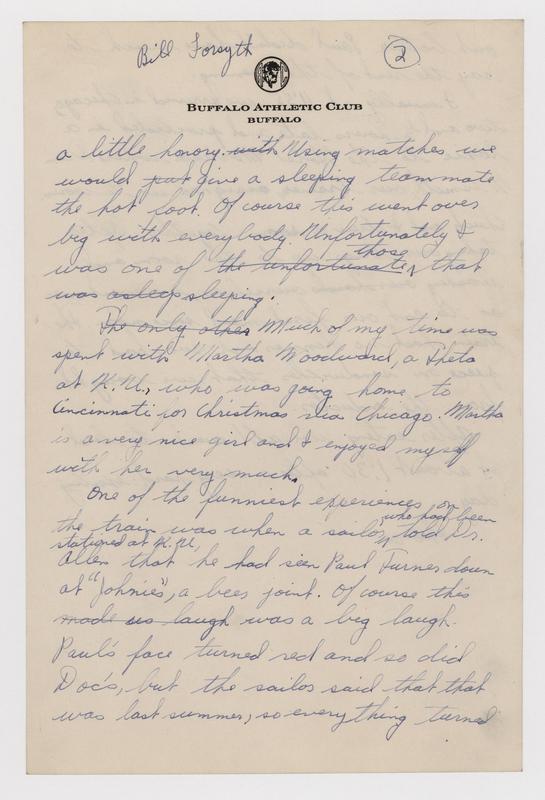 Bill Forsyth
2
BUFFALO ATHLETIC CLUB
BUFFALO
a little honory. with Using matches we
would put give a sleeping teammate
the hot foot. Of course this went over
big with everybody. Unfortunately I
was one of the unfortunate those that
was asleep sleeping.
The only other Much of my time was
spent with Martha Woodward, a Theta
at K.U., who was going home to
Cincinnati for Christmas via Chicago. Martha
is a very nice girl and I enjoyed myself
with her very much.
One of the funniest experiences on
the train was when a sailor, who had been
stationed at K.U., told Dr.
Allen that he had seen Paul Turner down
at "Johnie's", a beer joint. Of course this
made us laugh was a big laugh.
Paul's face turned red and so did
Doc's, but the sailor said that that
was last summer, so everything turned